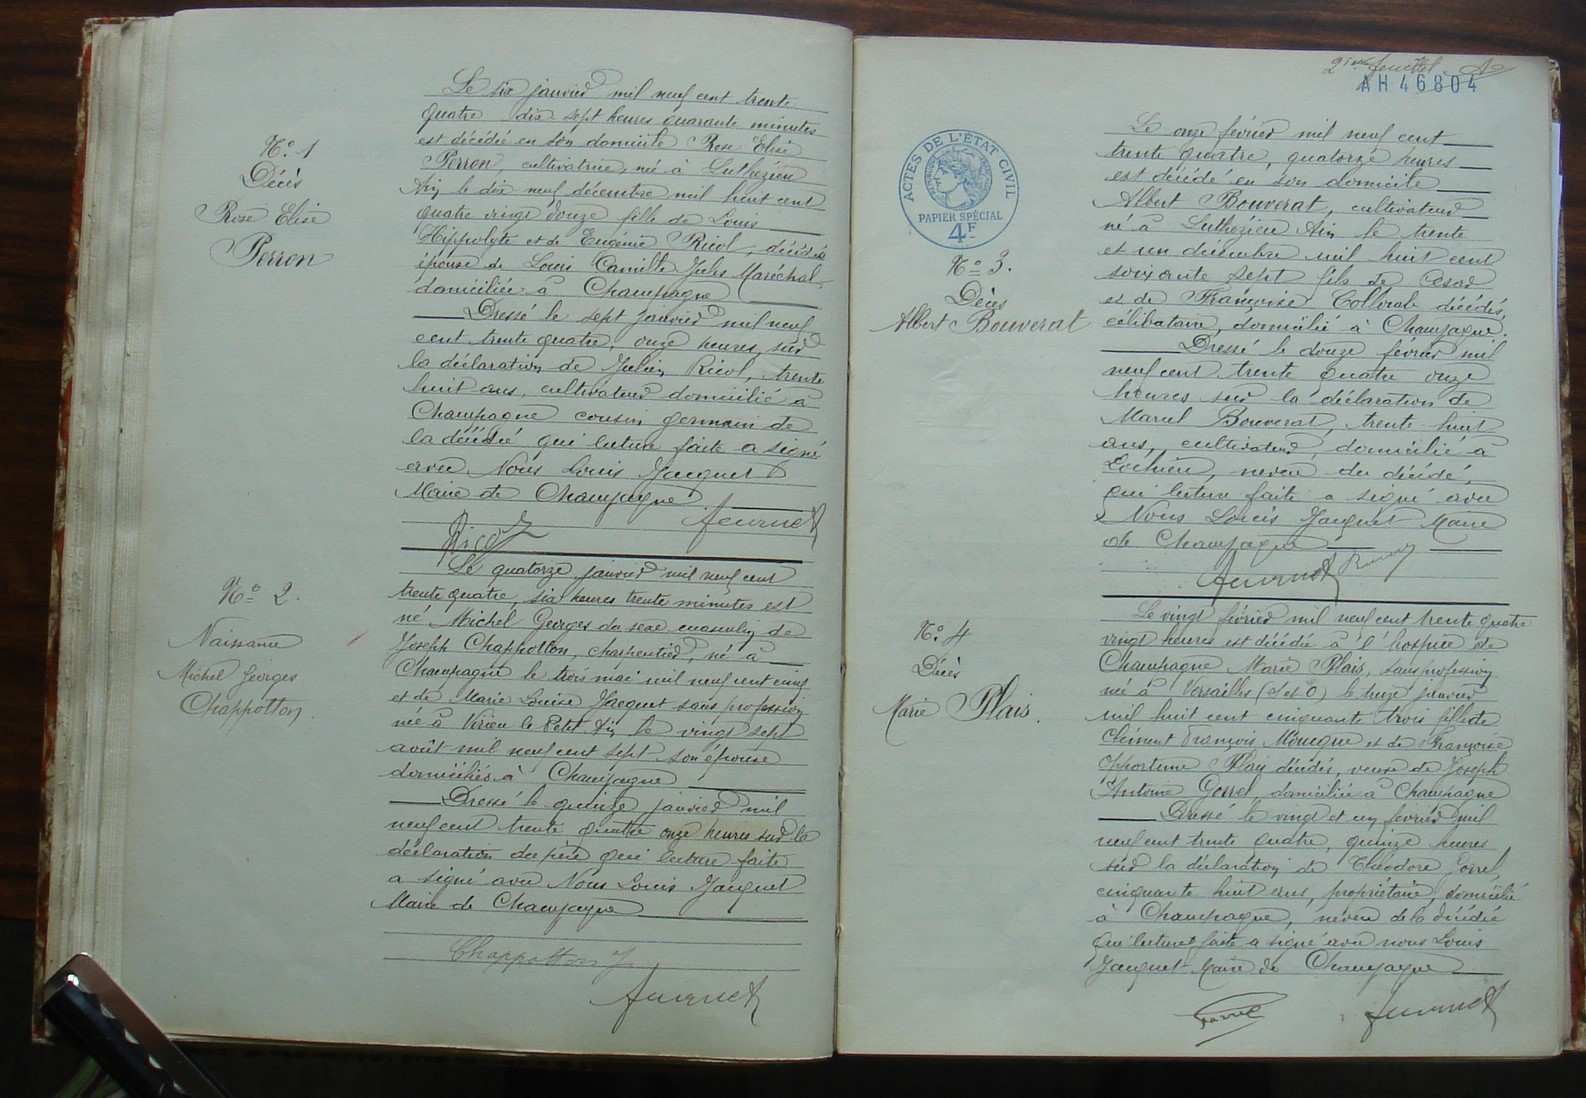 N° 1
Décès
Rose Elise
Perron
Le six janvier mil neuf cent trente
quatre dix-sept heures quarante minutes
est décédée en son domicile Rose Elise
Perron, cultivatrice, née à Luthézieu
Ain le dix neuf décembre mil huit cent
quatre vingt douze fille de Louis
Hippolyte et de Eugénie Ricol, décédés
épouse de Louis Camille Jules Maréchal,
domiciliée à Champagne
Dressé le sept janvier mil neuf
cent trente quatre, onze heures, sur
la déclaration de Julien Ricol, trente
huit ans, cultivateur domicilié à
Champagne cousin germain de
la décédée, qui lecture faite a signé
avec Nous Louis Jacquet
Maire de Champagne
N° 2.
Naissance
Michel Georges
Chappotton
Le quatorze janvier mil neuf cent
trente quatre, six heures trente minutes est
né Michel Georges du sexe masculin de
Joseph Chappotton, charpentier, né à
Champagne le trois mai mil neuf cent cinq
et de Marie Louise Jacquet sans profession
née à Virieu le Petit Ain le vingt sept
août mil neuf cent sept son épouse
domiciliés à Champagne
Dressé le quinze janvier mil
neuf cent trente quatre onze heures sur la
déclaration du père qui lecture faite
a signé avec Nous Louis Jacquet
Maire de Champagne
Chappotton J
2ième feuillet
AH 46804
ACTES DE L'ÉTAT CIVIL
PAPIER SPÉCIAL
4F
N° 3.
Décès
Albert Bouverat
Le onze février mil neuf cent
trente quatre, quatorze heures
est décédé en son domicile
Albert Bouverat, cultivateur
né à Luthézieu Ain le trente
et un décembre mil huit cent
soixante sept fils de César
et de Françoise décédés,
célibataire, domicilié à Champagne.
Dressé le douze février mil
neuf cent trente quatre onze
heures sur la déclaration de
Marcel Bouverat, trente huit
ans, cultivateur, domicilié à
Lochieu, neveu du décédé,
qui lecture faite a signé avec
Nous Louis Jacquet Maire
de Champagne
N° 4
Décès
Marie Plais.
Le vingt février mil neuf cent trente quatre
vingt heures est décédée à l'hospice de
Champagne Marie Plais, sans profession
née à Versailles (S et O) le onze janvier
mil huit cent cinquante trois fille de
Clément François et de Françoise
Plais décédés, veuve de Joseph
Antoine Gorrel domiciliée à Champagne
Dressé le vingt et un février mil
neuf cent trente quatre, quinze heures
sur la déclaration de Théodore Gorrel,
cinquante huit ans, propriétaire, domicilié
à Champagne, neveu de la décédée
qui lecture faite a signé avec nous Louis
Jacquet Maire de Champagne